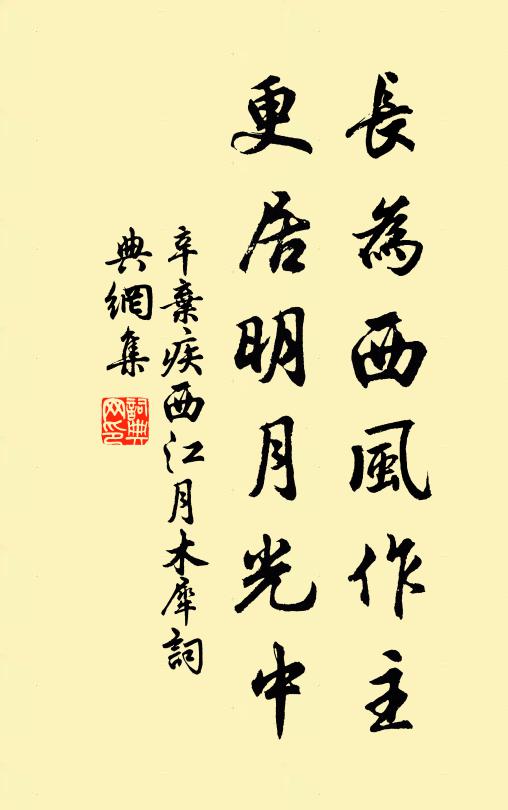 長為西風作主
更居明月光中
辛棄疾西江月木犀詞
典網集
詞典
网印